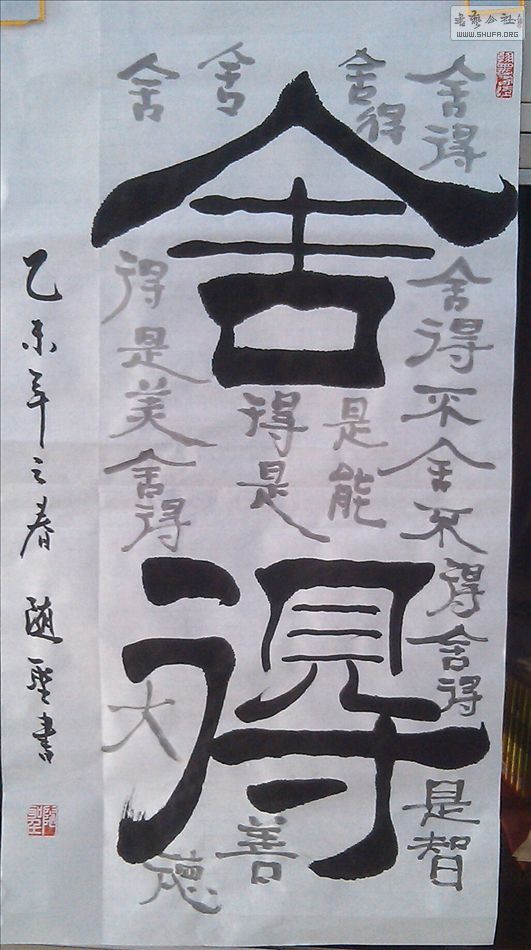 舍得
舍得舍得不舍不得舍得是智
舍得是能
舍得是善
舍得是美舍得大德
乙未年之春 随聖書
书艺公社
WWW.SHUFA.ORG